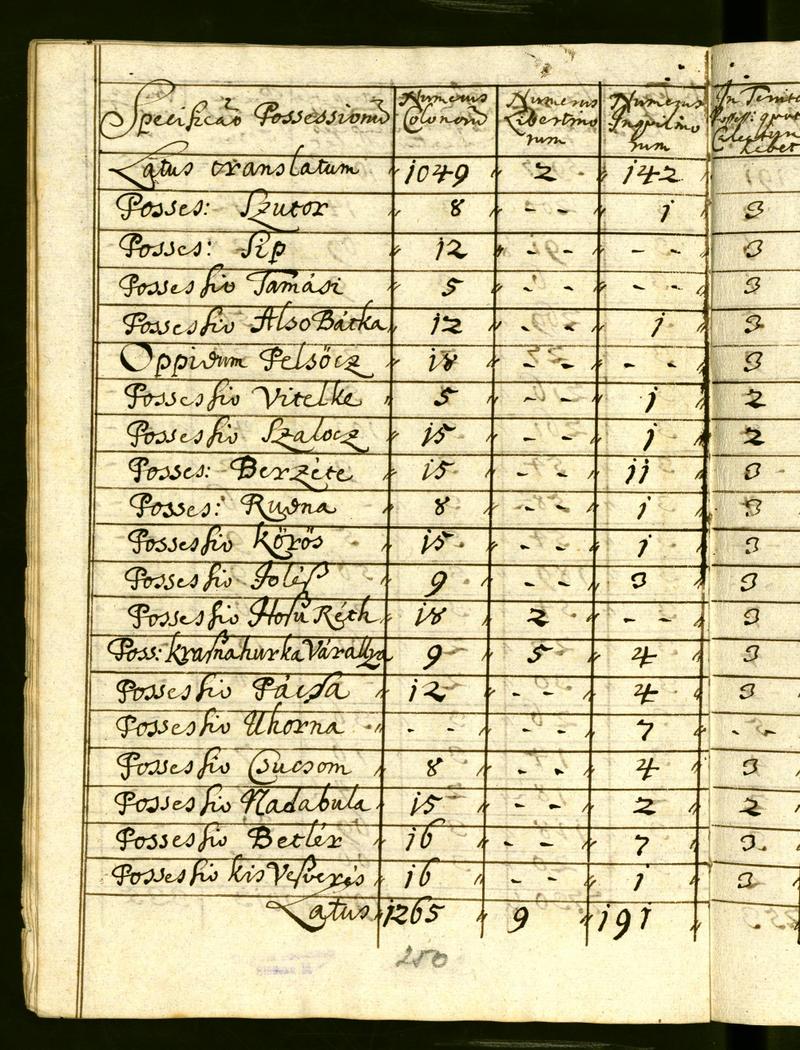 Specificao Possessionu Numerus Colonoru Numerus Libertino rum Numerus Inquilino rum In Territ
Latus translatum 1049 2 142
Posses: Szutor " 8 " - - " 1 " 3
Posses: Sip " 12 " - - " - - " 3
Possessio Tamási " 5 " - - " - - " 3
Possessio Also Bátka " 12 " - - " 1 " 3
Oppidum Pelsőcz " 18 " - - " - - " 3
Possessio Vitelke " 5 " - - " 1 " 2
Possessio Szalocz " 15 " - - " 1 " 2
Posses: Berzéte " 15 " - - " 11 " 3
Posses: Rudna " 8 " - - " 1 " 3
Possessio Kőrős " 15 " - - " 1 " 3
Possessio Jolész " 9 " - - " 3 " 3
Possessio Hosu Réth " 18 " 2 " - - " 3
Poss: krasnahurka Várallya " 9 " 5 " 4 " 3
Possessio Pácsa " 12 " - - " 4 " 3
Possessio Uhorna " - - " - - " 7 " - -
Possessio Csucsom " 8 " - - " 4 " 3
Possessio Nadabula " 15 " - - " 2 " 2
Possessio Betlér " 16 " - - " 7 " 3
Possessio kis Vesverés " 16 " - - " 1 " 3
Latus " 1265 " 9 " 191 "
250